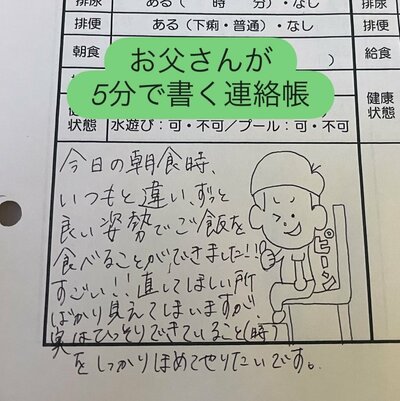 排尿 ある( 時 分)・なし 排尿
排便 ある(下痢・普通)・なし 排便
朝食 ) 給食
お父さんが
5分で書く連絡帳
健康
状態 水遊び:可・不可/プール:可・不可 状態
今日の朝食時、
いつもと違い、ずっと
良い姿勢でご飯を
食べることができました!!
すごい!!直してほしい所
ばかり見えてしまいますが、
実はひっそりできていること(時)
をしっかりほめてやりたいです。
ピーン